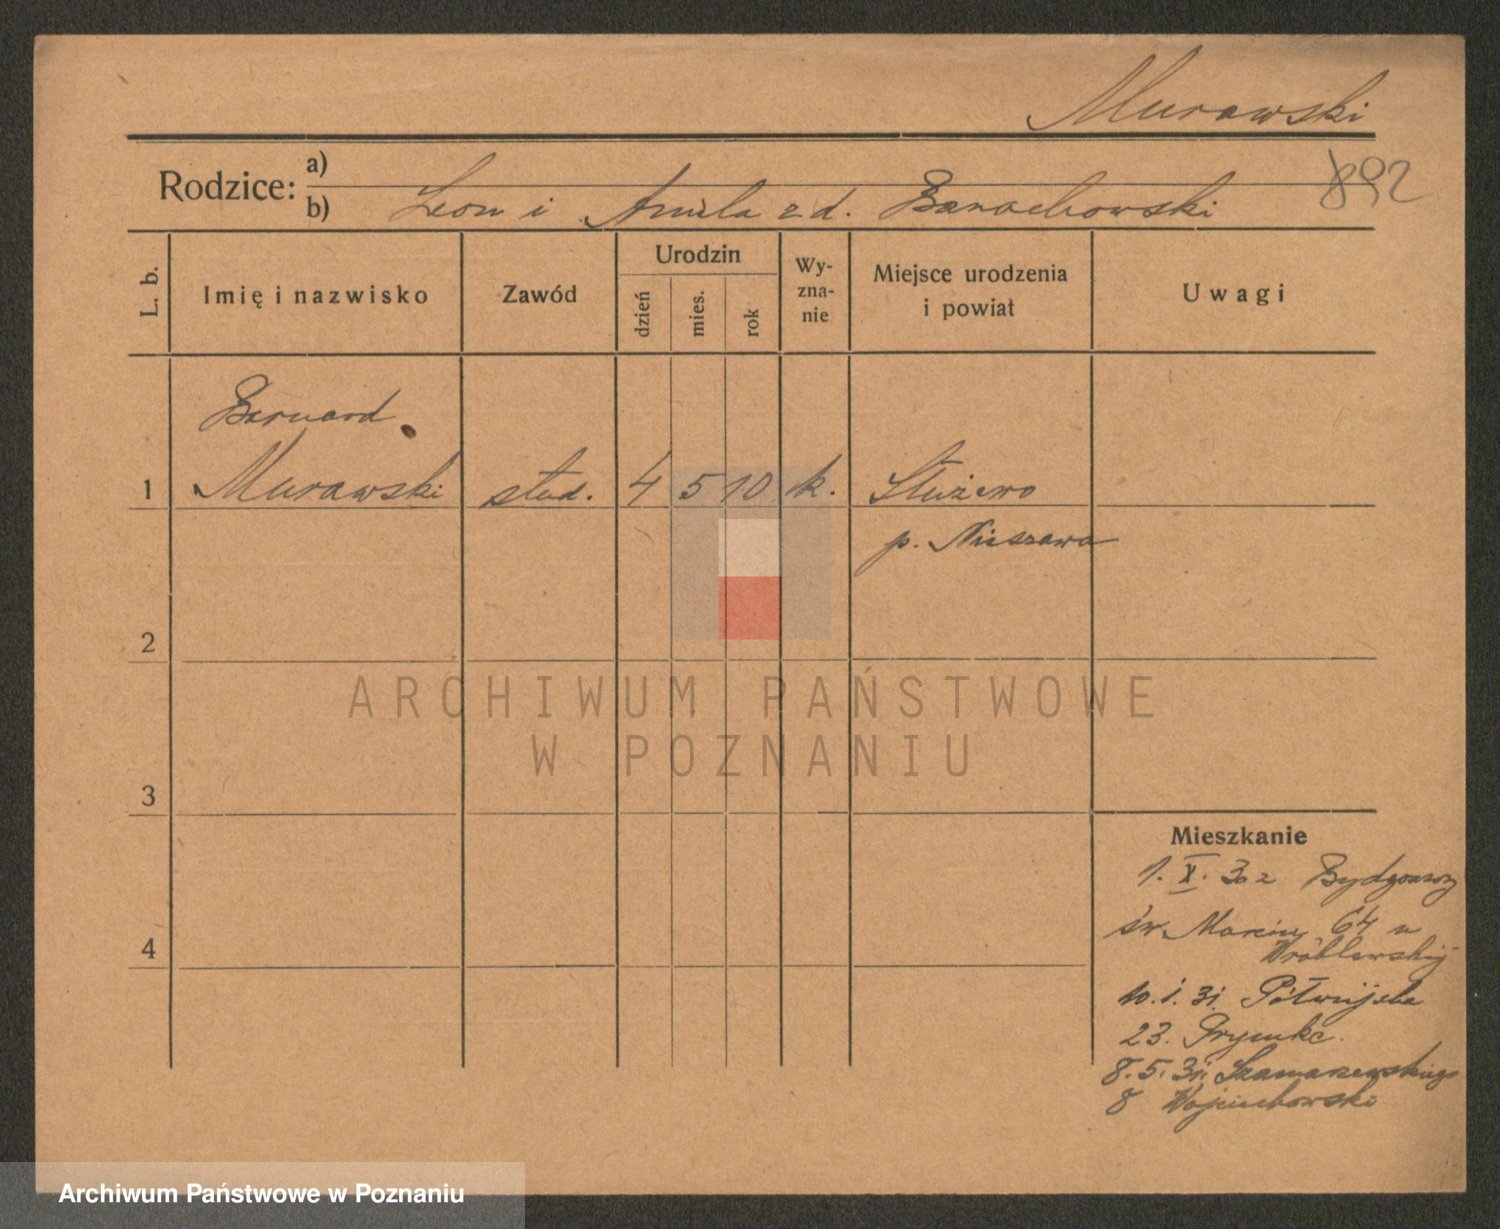 Murawski
892
Rodzice: a)
b) Leon i Aniela z d. Barachowski
L. b.
Imię i nazwisko
Zawód
Urodzin
dzień
mies.
rok
Wy-
zna-
nie
Miejsce urodzenia
i powiat
Uwagi
Bernard
1 Murawski stud. 4 5 10 k. Służewo
p. Nieszawa
2
ARCHIWUM PAŃSTWOWE
W POZNANIU
3
Mieszkanie
1. X. 30 z Bydgoszczy
św. Marcin 64 u
Wróblewskiej
4
10. 1. 31. Półwiejska
23.
8. 5. 31. Szamarzewskiego
8 Wojciechowski
Archiwum Państwowe w Poznaniu